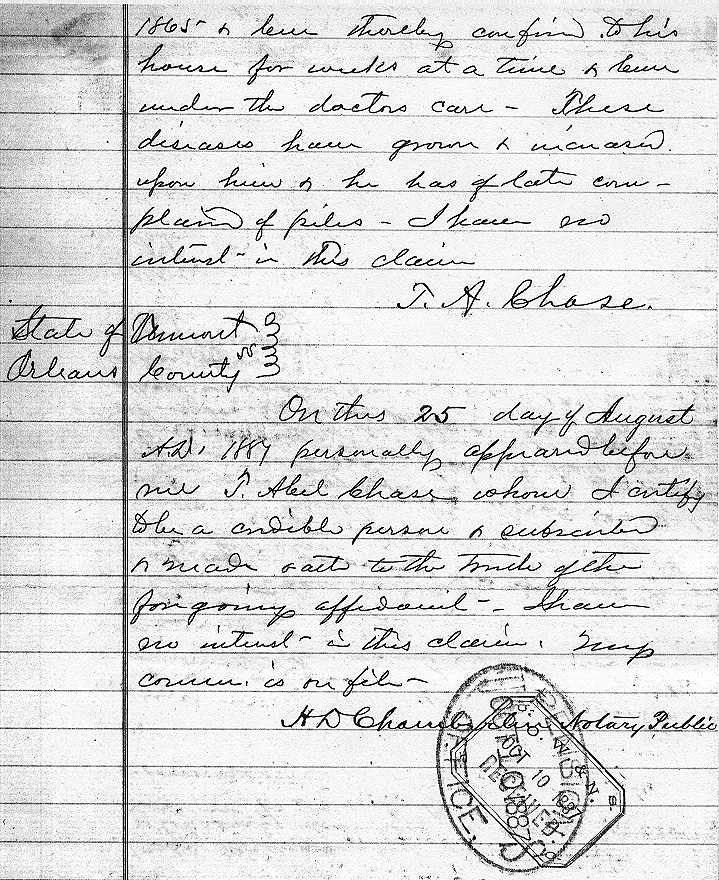 1865 & been thereby confind to his
house for weeks at a time & been
under the doctors care - These
diseases have grown & increased
upon him & he has of late com-
plaind of piles - I have no
interest in this claim
T. A. Chase.
State of Vermont
Orleans County ss
On this 25 day of August
A.D. 1887 personally appeared before
me T. Abel Chase whom I certify
to be a credible person & subscribed
& made oath to the truth of the
forgoing affidavit - I have
no interest in this claim. My
comm. is on file -
H D Chamberlain Notary Public
U.S. PENSION
OFFICE.
OCT 10 1887
S. D. W. & N. S.
OCT 10 1887
RECEIVED